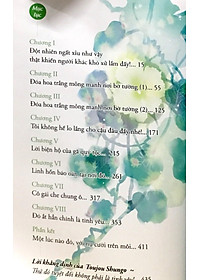 Mục
lục
Chương I
Đột nhiên ngất xỉu như vậy
thật khiến người khác khó xử lắm đấy!... 15
Chương II
Đóa hoa trắng mỏng manh nơi bờ tường (1)... 55
Chương III
Đóa hoa trắng mỏng manh nơi bờ tường (2)... 125
Chương IV
Tôi không hề lo lắng cho cậu đâu đấy nhé!... 171
Chương V
Lời biện hộ của gã quý tộc... 245
Chương VI
Linh hồn báo oán lại nơi đó... 265
Chương VII
Cô gái che chung ô... 317
Chương VIII
Đó ắt hẳn chính là tình yêu... 353
Phần kết
Một lúc nào đó, với nụ cười trên môi... 411
Lời khẳng định của Toujou Shungo ~
Thứ đó tuyệt đối không phải là tình yêu!... 435